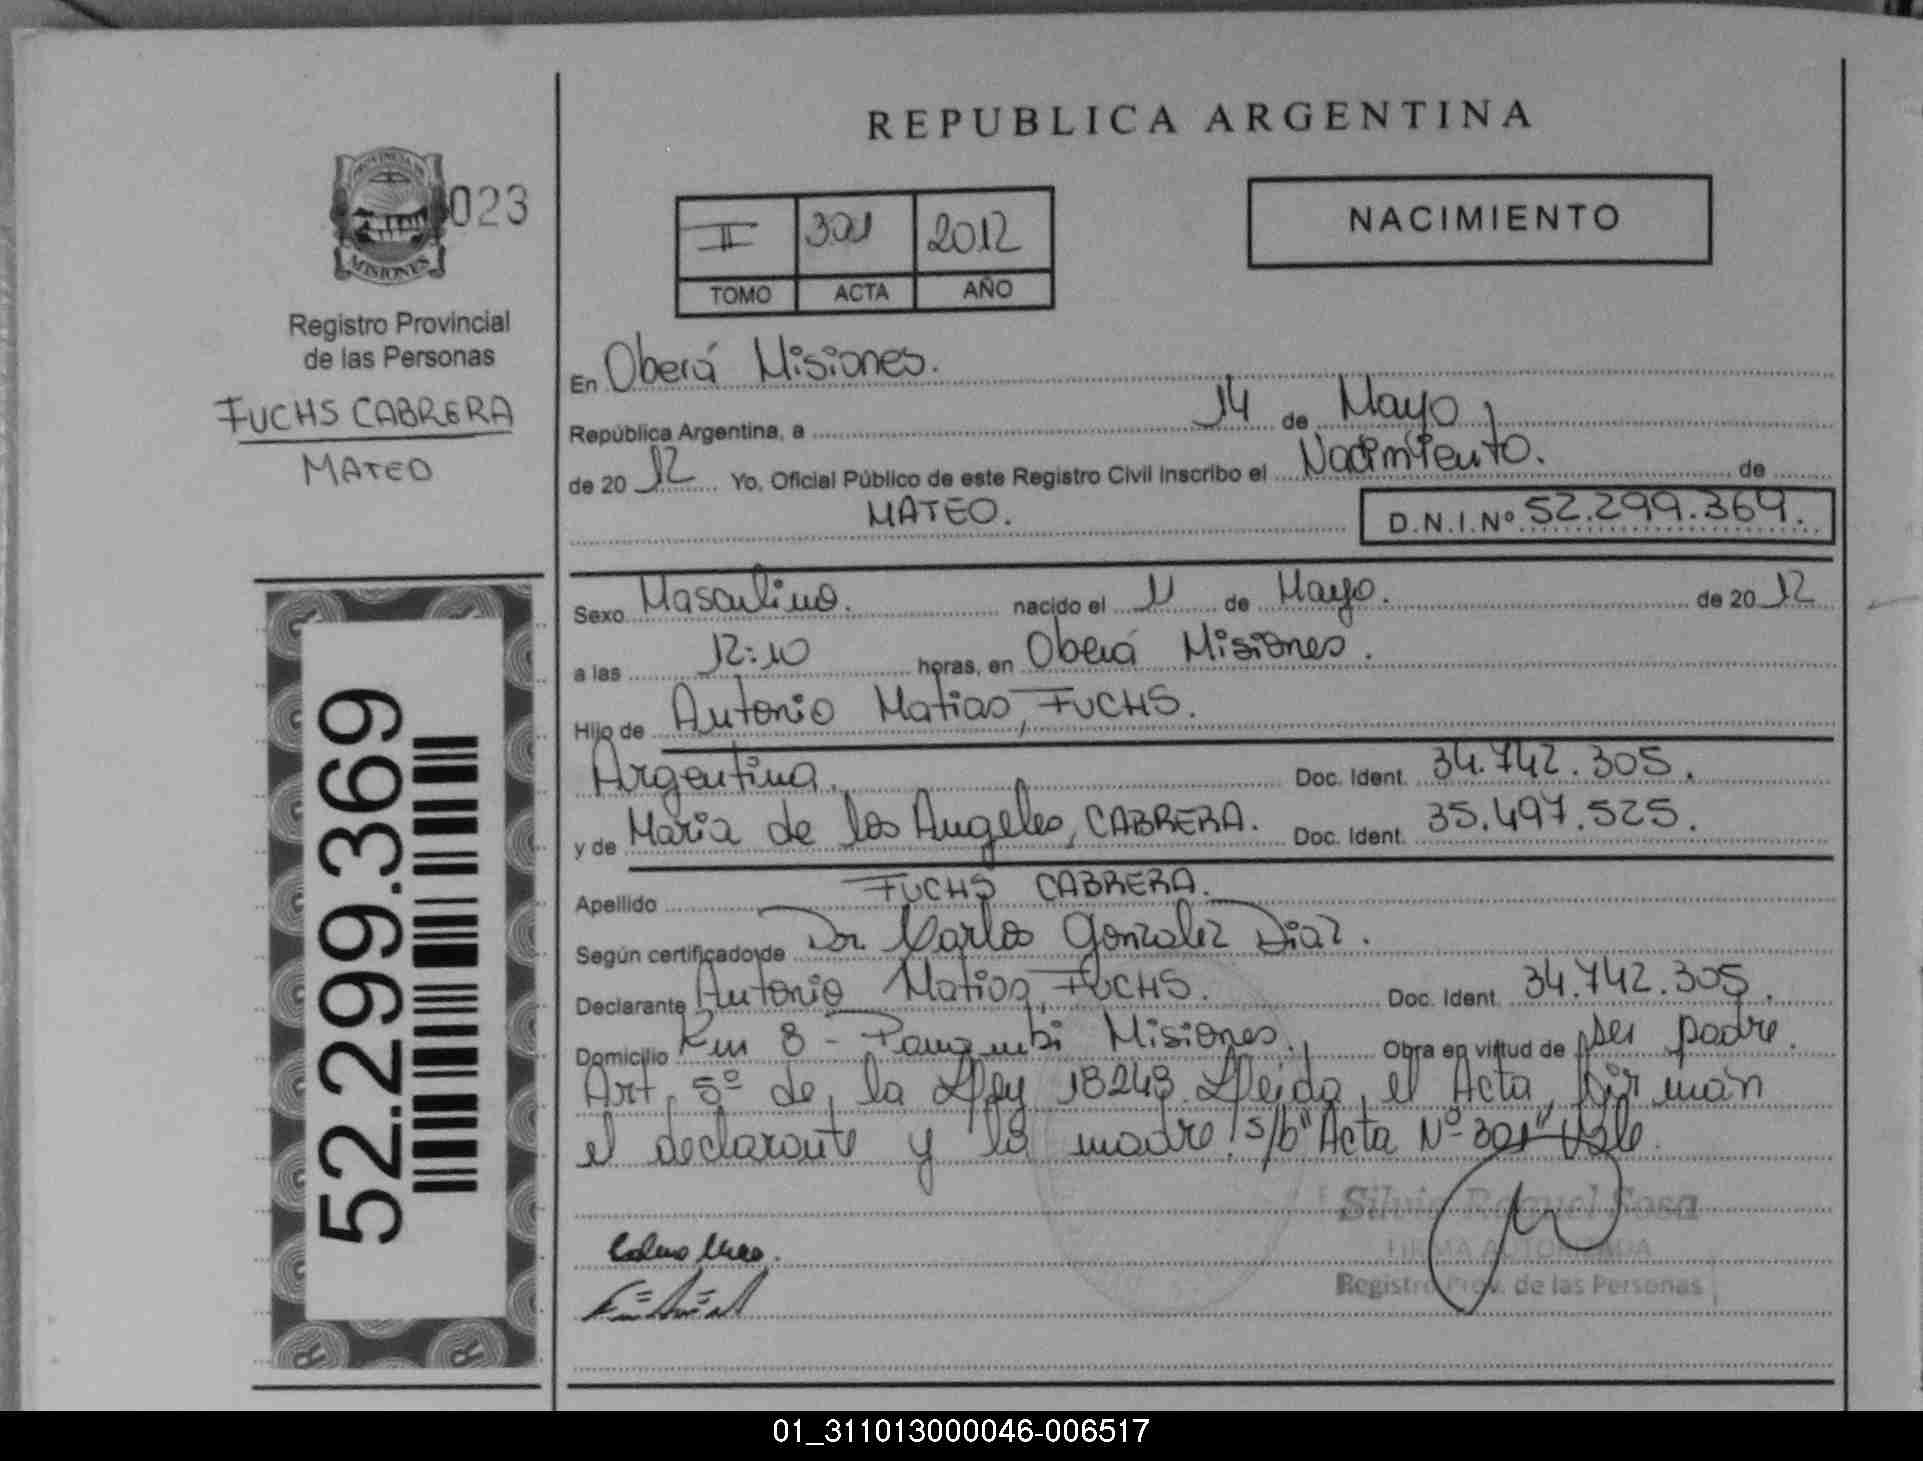 REPUBLICA ARGENTINA
PROVINCIA DE
MISIONES
023
Registro Provincial
de las Personas
FUCHS CABRERA
MATEO
52.299.369
II 301 2012
TOMO ACTA AÑO
NACIMIENTO
En Oberá Misiones.
República Argentina, a 14 de Mayo
de 20 12 Yo, Oficial Público de este Registro Civil inscribo el Nacimiento. de
MATEO. D.N.I.Nº 52.299.369.
Sexo Masculino. nacido el 11 de Mayo. de 20 12
a las 12:10 horas, en Oberá Misiones.
Hijo de Antonio Matias, FUCHS.
Argentina. Doc. Ident. 34.742.305.
y de Maria de los Angeles, CABRERA. Doc. Ident. 35.497.525.
Apellido FUCHS CABRERA.
Según certificado de Dr. Carlos Gonzalez Diaz.
Declarante Antonio Matias, FUCHS. Doc. Ident. 34.742.305.
Domicilio Km 8 - Panambi Misiones. Obra en virtud de ser padre.
Art. 5º de la Ley 18248. Leida el Acta, firman
el declarante y la madre. s/b "Acta Nº 301" Vale.
Silvia Raquel Sosa
FIRMA AUTORIZADA
Registro Prov. de las Personas
01_311013000046-006517